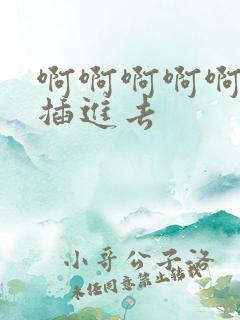 啊啊啊啊啊
插進去
小哥公子洛
未经同意禁止转载